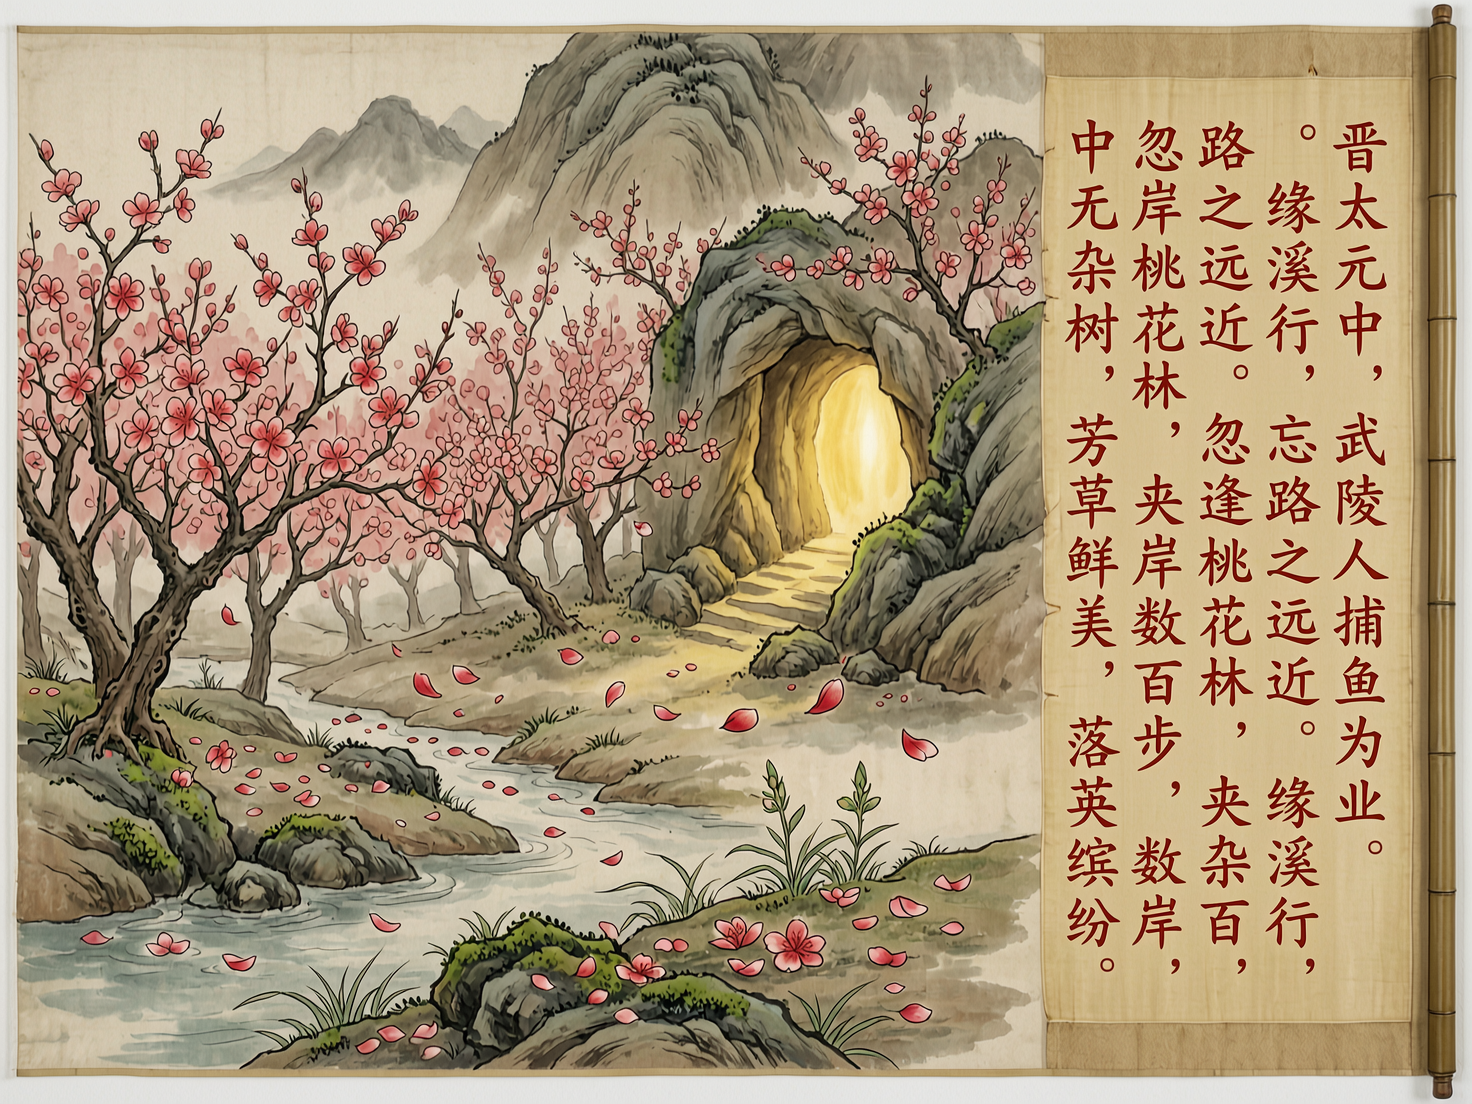 晋太元中，武陵人捕鱼为业。
。缘溪行，忘路之远近。缘溪行，
路之远近。忽逢桃花林，夹杂百，
忽岸桃花林，夹岸数百步，数岸，
中无杂树，芳草鲜美，落英缤纷。